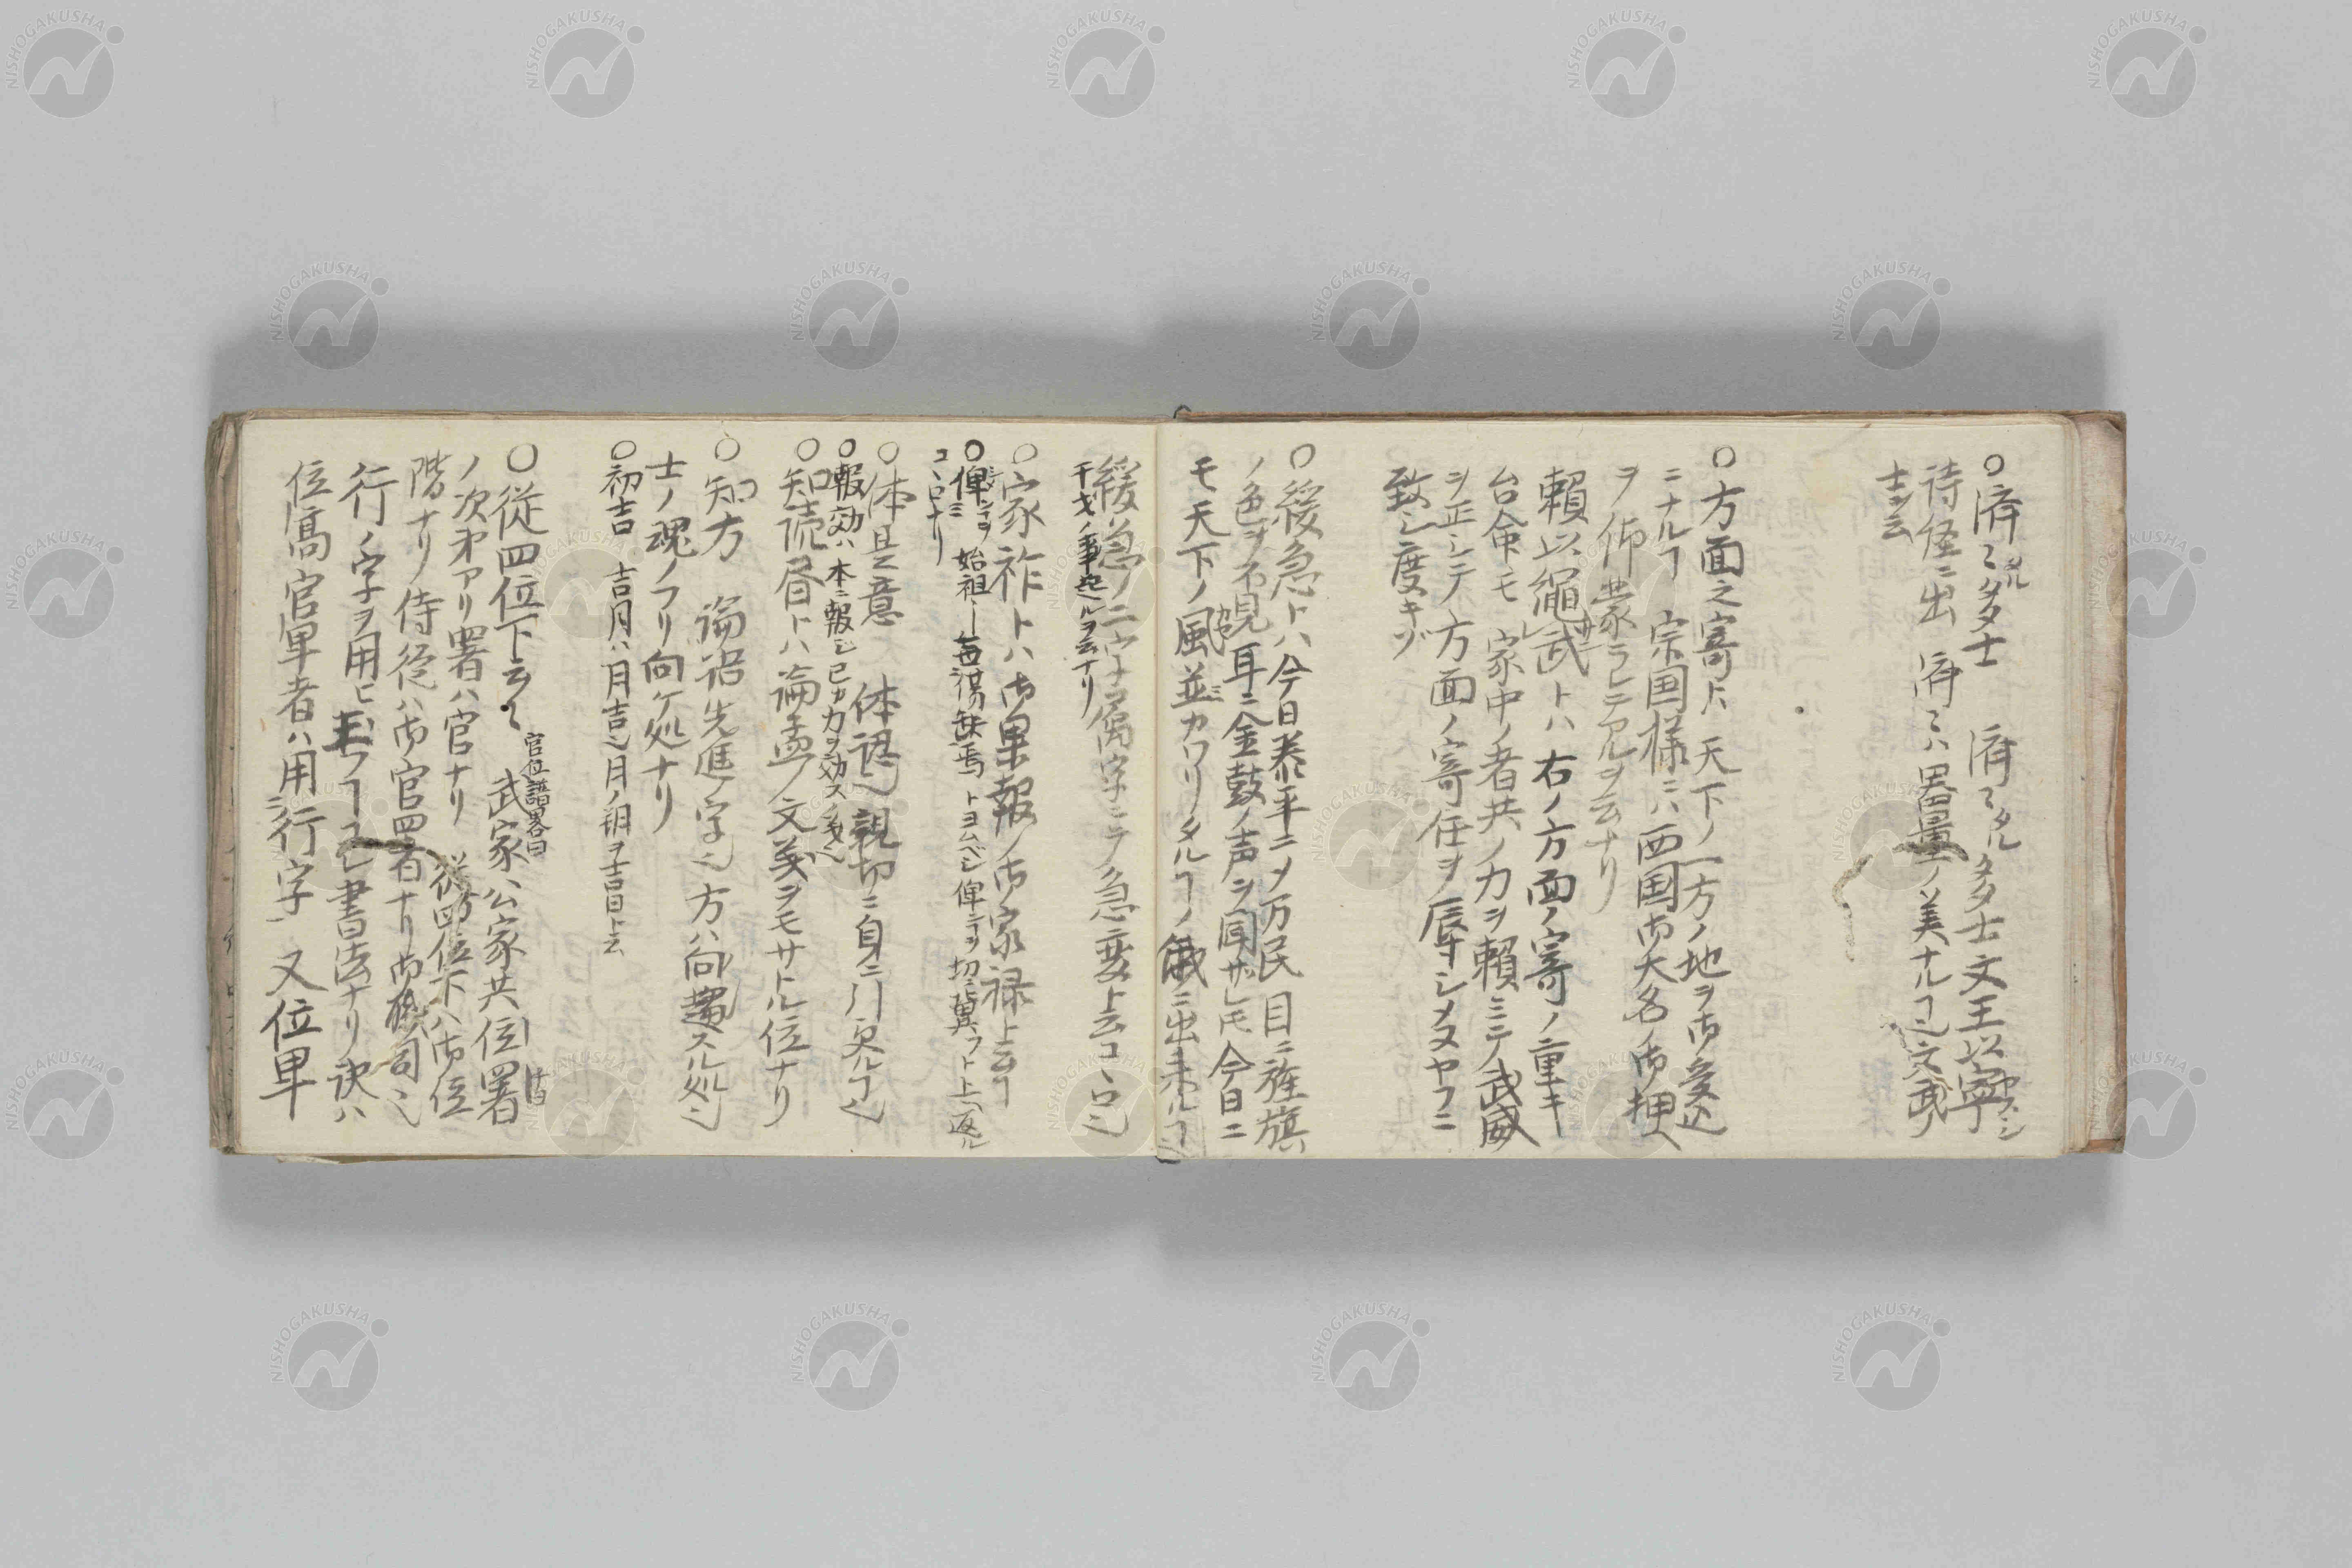 ○済〻タル多士 済〻タル多士文王以寧ヤスシ
詩経ニ出 済〻ハ器量ノ美ナルヿ也文武ノ
士ヲ云
○方面之寄トハ天下ノ一方ノ地ヲ御受込
ニナルヿ 宗国様ニハ西国御大名ノ御押ヘ
ヲ仰蒙ラレテアルヲ云ナリ
頼以繩武トハ右ノ方面ノ寄ノ重キ
台命モ家中ノ者共ノ力ヲ頼ミニテ武威
ヲ正シテ方面ノ寄任ヲ辱シメヌヤフニ
致シ度キゾ
○緩急トハ今日泰平ニメ万民目ニ旌旗
ノ色ヲ不見耳ニ金鼓ノ声ヲ聞ザレ𪜈今日ニ
モ天下ノ風並カワリタルヿノ俄ニ出来ルヿ也
緩急ノ二字属字ニテ急変ト云コヽロ也
干戈ノ事起ルヲ云ナリ
○家祚トハ御果報ノ御家禄ト云ヿ
○俾シテヲ始祖ニ毎蕩無焉トヨムベシ俾テヲ切ニ冀フト上ヘ返ル
コヽロナリ
○体是意 体認也親切ニ身ニ引受ルヿ也
○報効ハ本ニ報シ己カ力ヲ効スノ義也
○知読層トハ論孟ノ文義ヲモサトル位ナリ
○知方 論語先進ノ字也方ハ向趨スル処也
士ノ魂ノフリ向ケ処ナリ
○初吉 吉月ハ月吉也月ノ朔ヲ吉日ト云
○従四位下云〻 官位譜畧曰 武家公家共位署
ノ次第アリ署ハ官ナリ 従四位下ハ御位
階ナリ侍従ハ御官署ナリ御職ノ司也
行ノ字ヲ用ヒ玉フヿコレ書法ナリ訣ハ
位高官卑者ハ用行字 又位卑